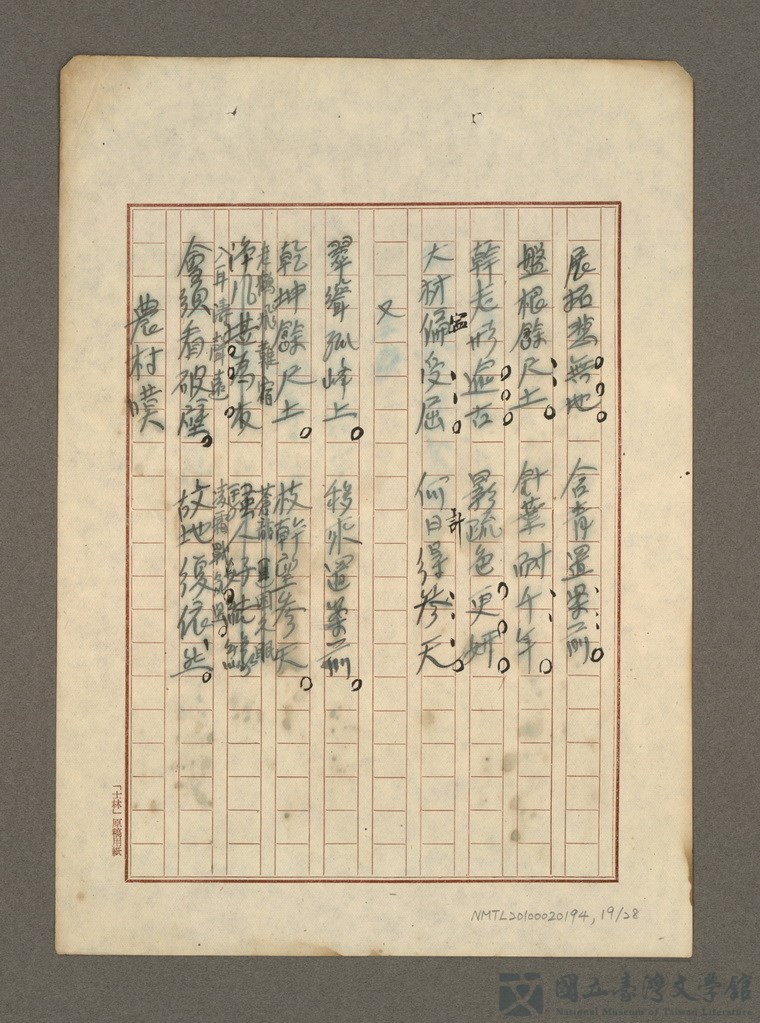 展拓愁無地 含青置案前
盤根餘尺土 針葉耐千年
幹老形逾古 影疏色更妍
大材偏受屈 何日得參天
寧 計
又
翠聳孤峰上 移來置案前
乾坤餘尺土 枝幹望參天
老鶴飛難宿 蒼龍
入耳濤聲遠
會須看破壁 故地復依然
農村曉
「士林」原稿用紙
NMTL20100020194, 19/28
國立臺灣文學館
National Museum of Taiwan Literature